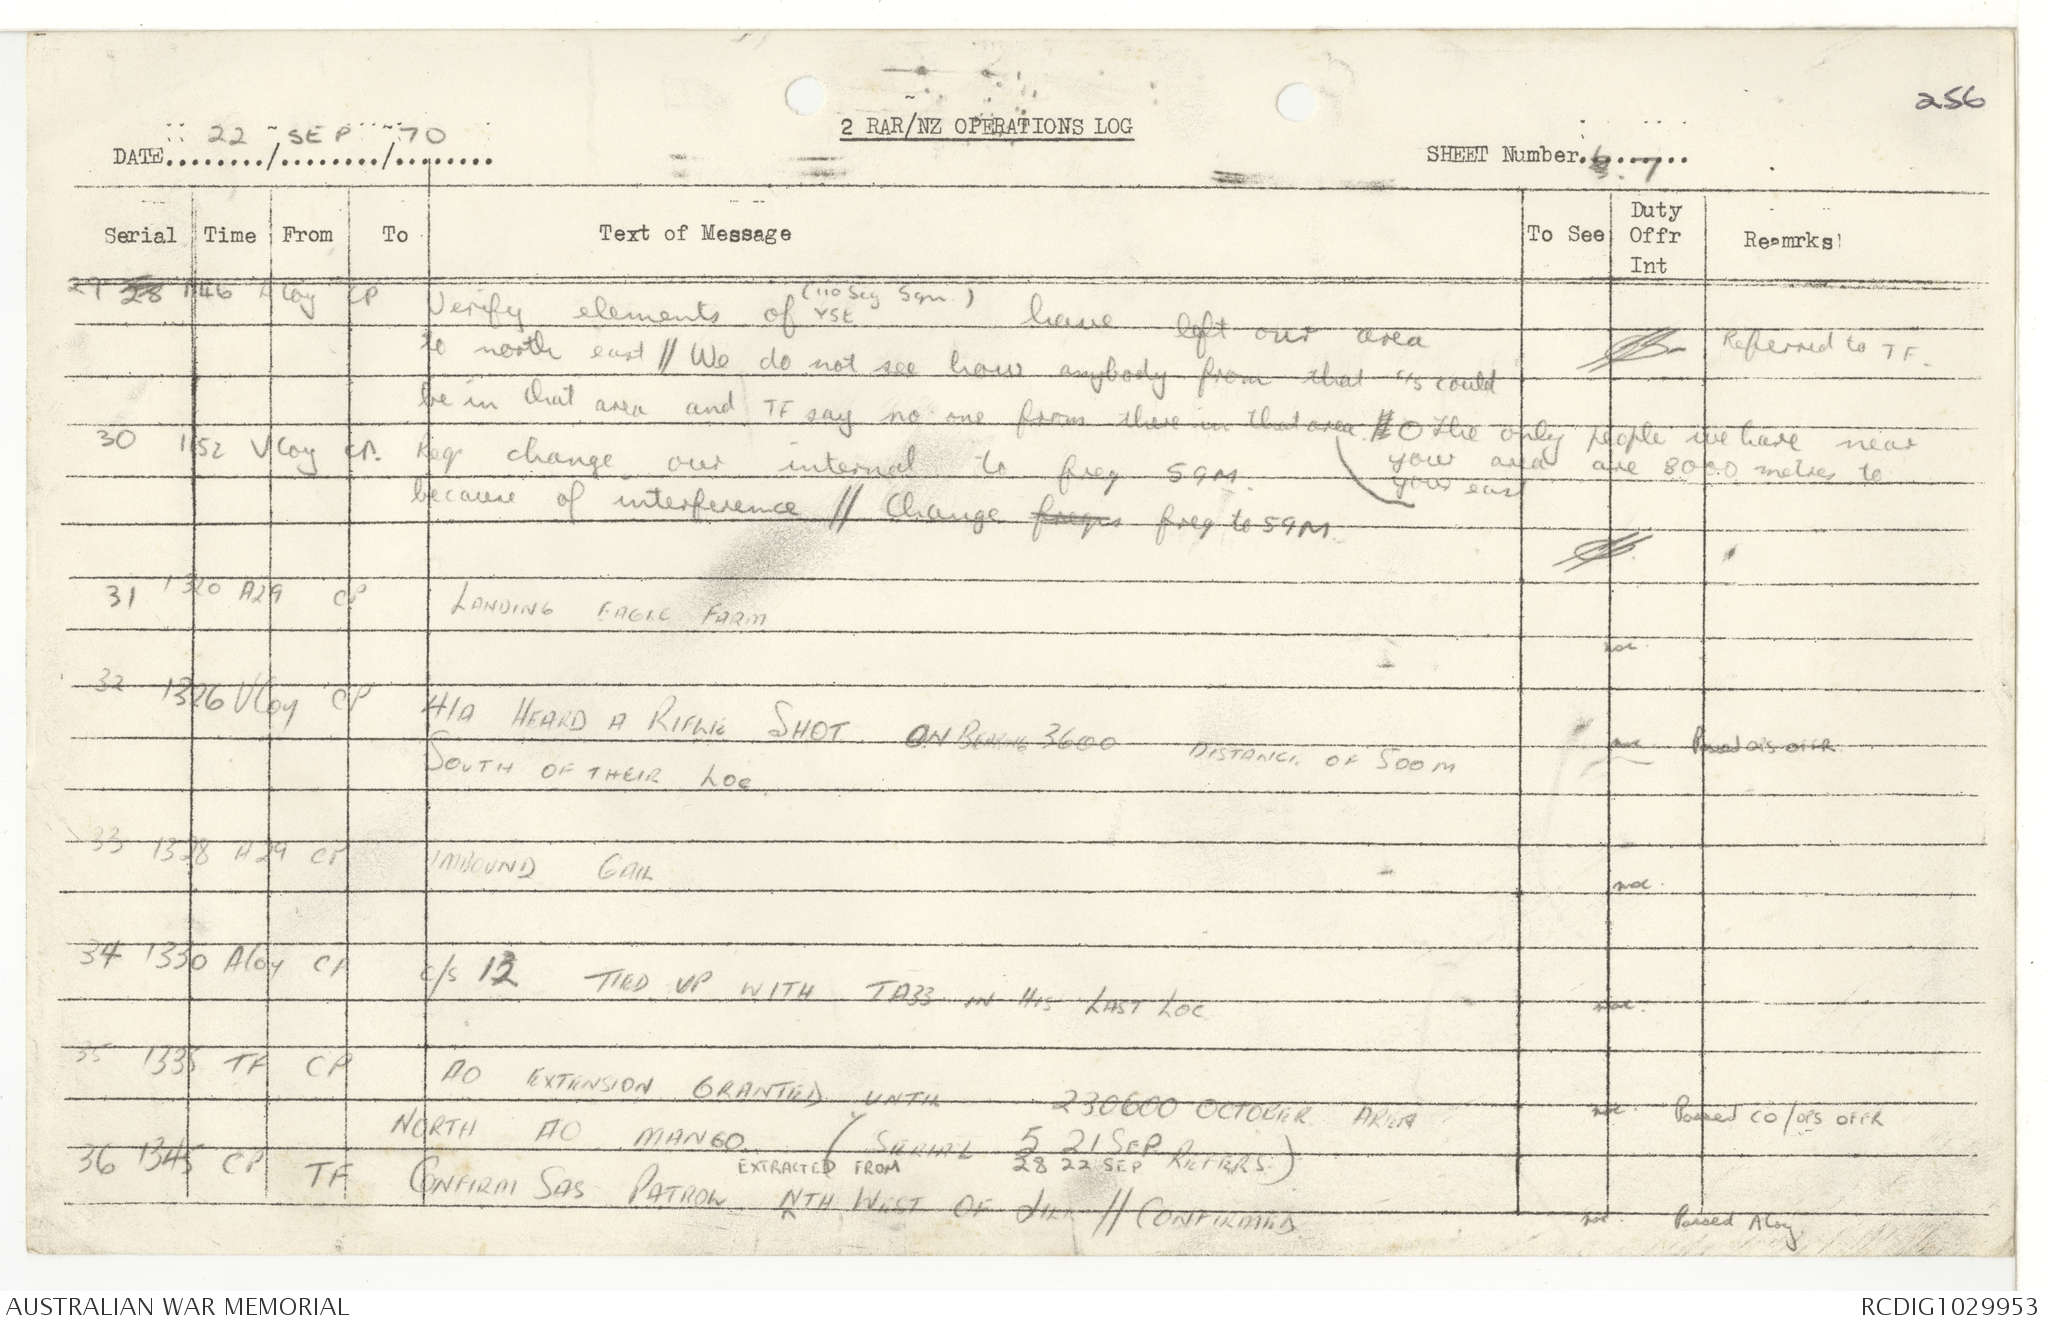 256
2 RAR/NZ OPERATIONS LOG
DATE 22 / SEP / 70
SHEET Number 7
Serial Time From To Text of Message To See Duty Offr Int Remrks
29 28 1146 ACoy CP Verify elements of YSE (110 Sig Sqn) have left our area
to north east // We do not see how anybody from that c/s could Referred to TF.
be in that area and TF say no one from there in that area // O The only people we have near
your area are 8000 metres to
your east
30 1152 VCoy CP. Req change our internal to freq 59M.
because of interference // Change freqs freq to 59M.
31 1320 A29 CP LANDING EAGLE FARM
32 1326 VCoy CP 41A HEARD A RIFLE SHOT ON BEARING 3600 DISTANCE OF 500M Passed OPS OFFR
SOUTH OF THEIR LOC
33 1328 A29 CP IMBOUND GAIL
34 1330 ACoy CP C/S 12 TIED UP WITH TA33 IN HIS LAST LOC
35 1335 TF CP AO EXTENSION GRANTED UNTIL 230600 OCTOBER AREA Passed CO/OPS OFFR
NORTH AO MANGO (SERIAL 5 21 SEP REFERS)
28 22 SEP
36 1345 CP TF CONFIRM SAS PATROL EXTRACTED FROM NTH WEST OF // CONFIRMED Passed ACoy
AUSTRALIAN WAR MEMORIAL
RCDIG1029953